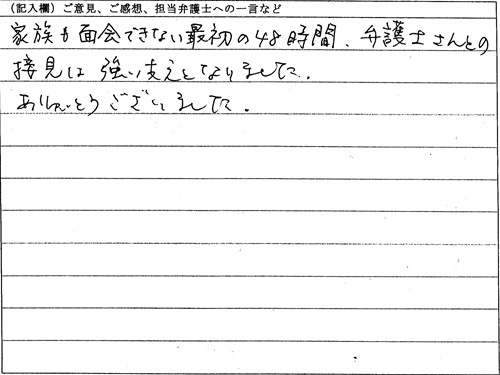 （記入欄）ご意見、ご感想、担当弁護士への一言など
家族も面会できない最初の48時間、弁護士さんとの
接見は強い支えとなりました。
ありがとうございました。